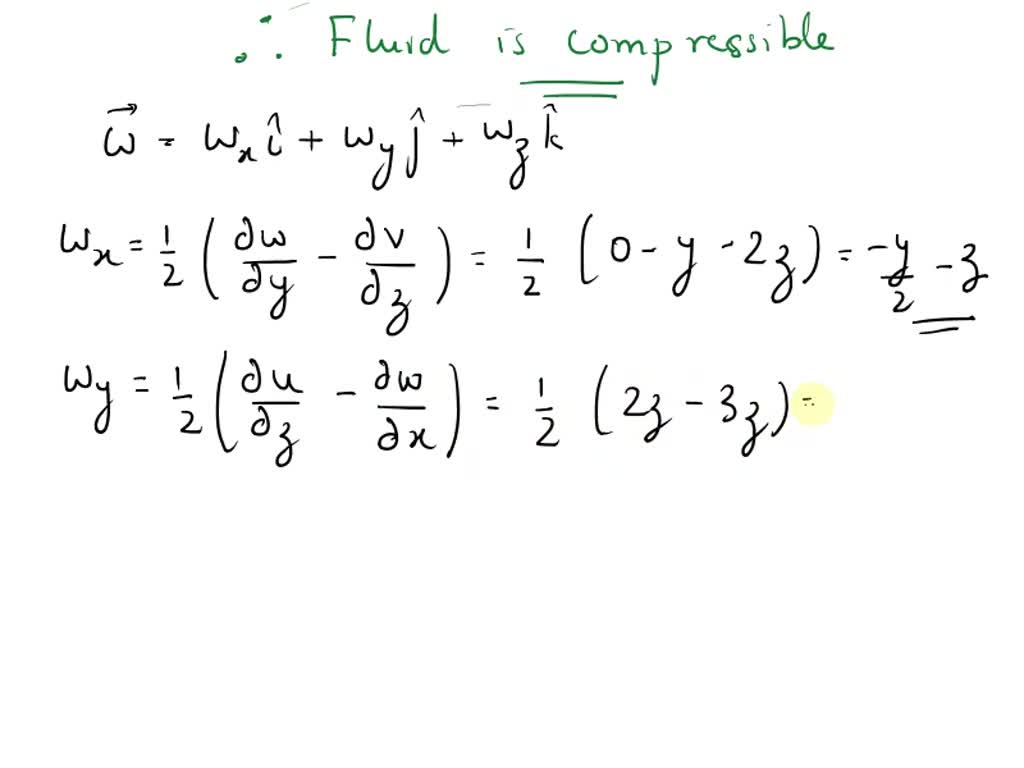 ∴ Fluid is compressible
ω⃗ = ωₓ î + ω_y ĵ + ω_z k̂
ωₓ = 1/2 (∂w/∂y - ∂v/∂z) = 1/2 (0 - y - 2z) = -y/2 - z
ω_y = 1/2 (∂u/∂z - ∂w/∂x) = 1/2 (2z - 3z) =